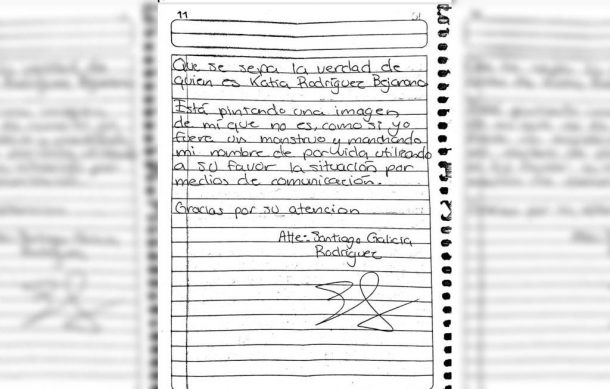 11
Que se sepa la verdad de
quien es Katia Rodríguez Bejarano
Está pintando una imagen
de mí que no es, como si yo
fuera un monstruo y manchando
mi nombre de por vida utilizando
a su favor la situación por
medios de comunicación.
Gracias por su atencion
Atte: Santiago Galicia
Rodríguez